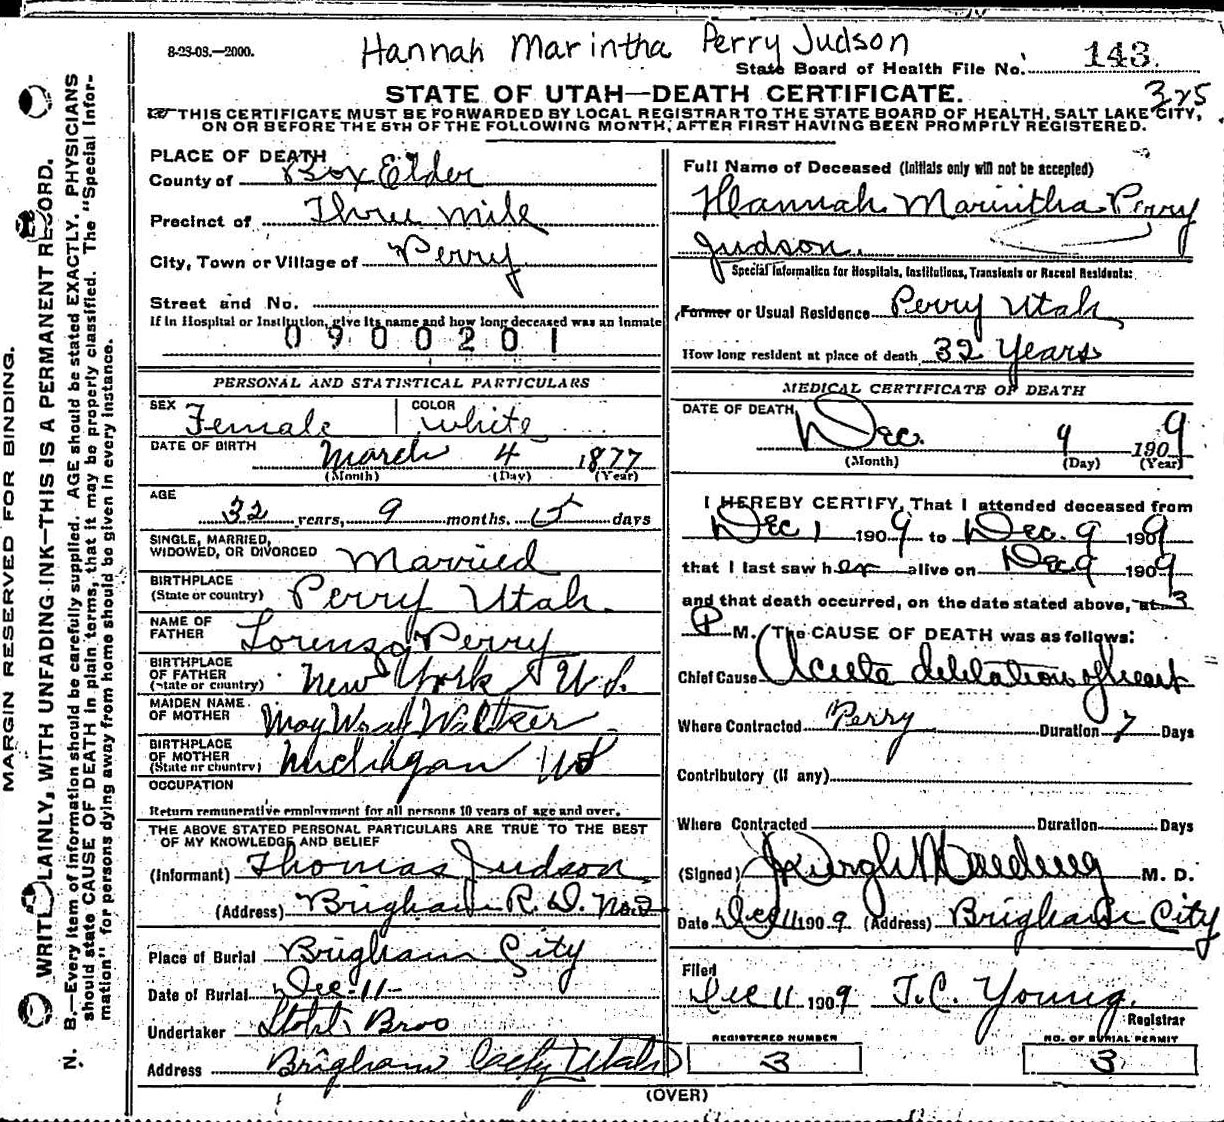 8-23-03.—2000.
Hannah Marintha Perry Judson
State Board of Health File No. 143.
325
STATE OF UTAH—DEATH CERTIFICATE.
THIS CERTIFICATE MUST BE FORWARDED BY LOCAL REGISTRAR TO THE STATE BOARD OF HEALTH, SALT LAKE CITY,
ON OR BEFORE THE 5TH OF THE FOLLOWING MONTH, AFTER FIRST HAVING BEEN PROMPTLY REGISTERED.
MARGIN RESERVED FOR BINDING.
WRITE PLAINLY, WITH UNFADING INK—THIS IS A PERMANENT RECORD.
N. B.—Every item of information should be carefully supplied. AGE should be stated EXACTLY. PHYSICIANS
should state CAUSE OF DEATH in plain terms, that it may be properly classified. The "Special Infor-
mation" for persons dying away from home should be given in every instance.
PLACE OF DEATH
County of Box Elder
Precinct of Three Mile
City, Town or Village of Perry
Street and No.
If in Hospital or Institution, give its name and how long deceased was an inmate
0900201
PERSONAL AND STATISTICAL PARTICULARS
SEX Female COLOR White
DATE OF BIRTH March 4 1877
(Month) (Day) (Year)
AGE
32 years, 9 months, 5 days
SINGLE, MARRIED,
WIDOWED, OR DIVORCED Married
BIRTHPLACE
(State or country) Perry Utah.
NAME OF
FATHER Lorenzo Perry
BIRTHPLACE
OF FATHER
(State or country) New York U.S.
MAIDEN NAME
OF MOTHER Walker
BIRTHPLACE
OF MOTHER
(State or country) Michigan US
OCCUPATION
Return remunerative employment for all persons 10 years of age and over.
THE ABOVE STATED PERSONAL PARTICULARS ARE TRUE TO THE BEST
OF MY KNOWLEDGE AND BELIEF
(Informant) Thomas Judson
(Address) Brigham R. D. No. 2
Place of Burial Brigham City
Date of Burial Dec-11-
Undertaker Bros
Address Brigham City Utah
Full Name of Deceased (Initials only will not be accepted)
Hannah Marintha Perry
Judson.
Special Information for Hospitals, Institutions, Transients or Recent Residents:
Former or Usual Residence Perry Utah
How long resident at place of death 32 Years
MEDICAL CERTIFICATE OF DEATH
DATE OF DEATH
Dec. 9 1909
(Month) (Day) (Year)
I HEREBY CERTIFY, That I attended deceased from
Dec 1 1909 to Dec. 9 1909
that I last saw her alive on Dec 9 1909
and that death occurred, on the date stated above, at 3
P M. The CAUSE OF DEATH was as follows:
Chief Cause Acute dilitation of heart
Where Contracted Perry Duration 7 Days
Contributory (if any)
Where Contracted Duration Days
(Signed) M. D.
Date Dec 11 1909 (Address) Brigham City
Filed
Dec 11 1909 T.C. Young.
Registrar
REGISTERED NUMBER NO. OF BURIAL PERMIT
3 3
(OVER)